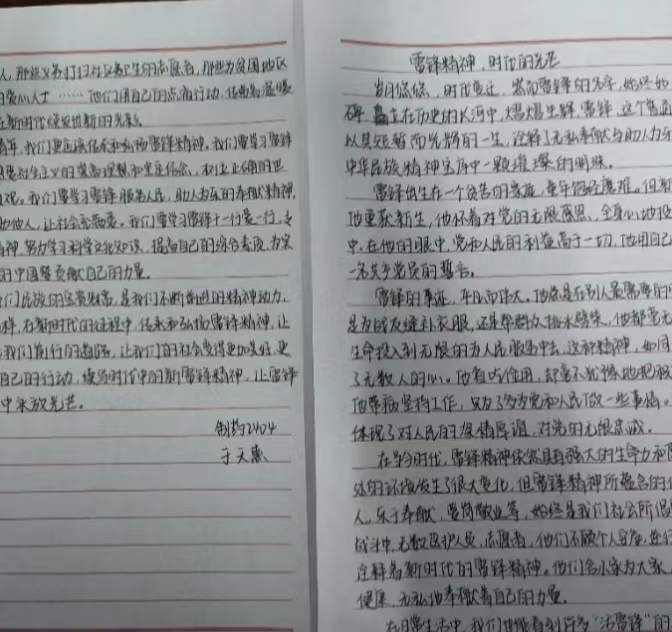 雷锋精神，时代的光芒
岁月悠悠，时代变迁，然而雷锋的名字，始终如
碑，矗立在历史的长河中，熠熠生辉。雷锋，这个普通
以其短暂而光辉的一生，诠释了无私奉献与助人为乐
中华民族精神宝库中一颗璀璨的明珠。
雷锋出生在一个贫苦的家庭，童年饱经磨难。但新
他重获新生，他怀着对党的无限感恩，全身心地投
中。在他的眼中，党和人民的利益高于一切，他用自己
一名共产党员的誓言。
雷锋的事迹，平凡而伟大。他总是在别人最需要的
是为战友缝补衣服，还是帮群众挑水劈柴，他都毫无
生命投入到无限的为人民服务中去，这种精神，如同
了无数人的心。他省吃俭用，却毫不犹豫地把
他带病坚持工作，只为了多为党和人民做一些事情。
体现了对人民的深情厚谊，对党的无限忠诚。
在当今时代，雷锋精神依然具有强大的生命力和
处的环境发生了很大变化，但雷锋精神所蕴含的
人，乐于奉献，爱岗敬业等，始终是我们社会所倡
战斗中，无数医护人员、志愿者，他们不顾个人安危，逆
诠释着新时代的雷锋精神。他们舍小家为大家，
健康，无私地奉献着自己的力量。
在日常生活中，我们也能看到许多“活雷锋”的
人，那些义务打扫社区卫生的志愿者，那些为贫困地区
的爱心人士……他们用自己的点滴行动，传递着温暖
在新时代绽放出新的光彩。
青年，我们更应该传承和弘扬雷锋精神。我们要学习雷锋
共产主义的崇高理想和坚定信念，树立正确的世
观。我们要学习雷锋服务人民、助人为乐的奉献精神，
他人，让社会充满爱。我们要学习雷锋干一行爱一行、专
精神，努力学习科学文化知识，提高自己的综合素质，为实
的中国梦贡献自己的力量。
们民族的宝贵财富，是我们不断前进的精神动力。
样，在新时代的征程中，传承和弘扬雷锋精神，让
我们前行的道路，让我们的社会变得更加美好，更
自己的行动，续写时代中的新雷锋精神，让雷锋
中绽放光芒。
制药2404
于天惠